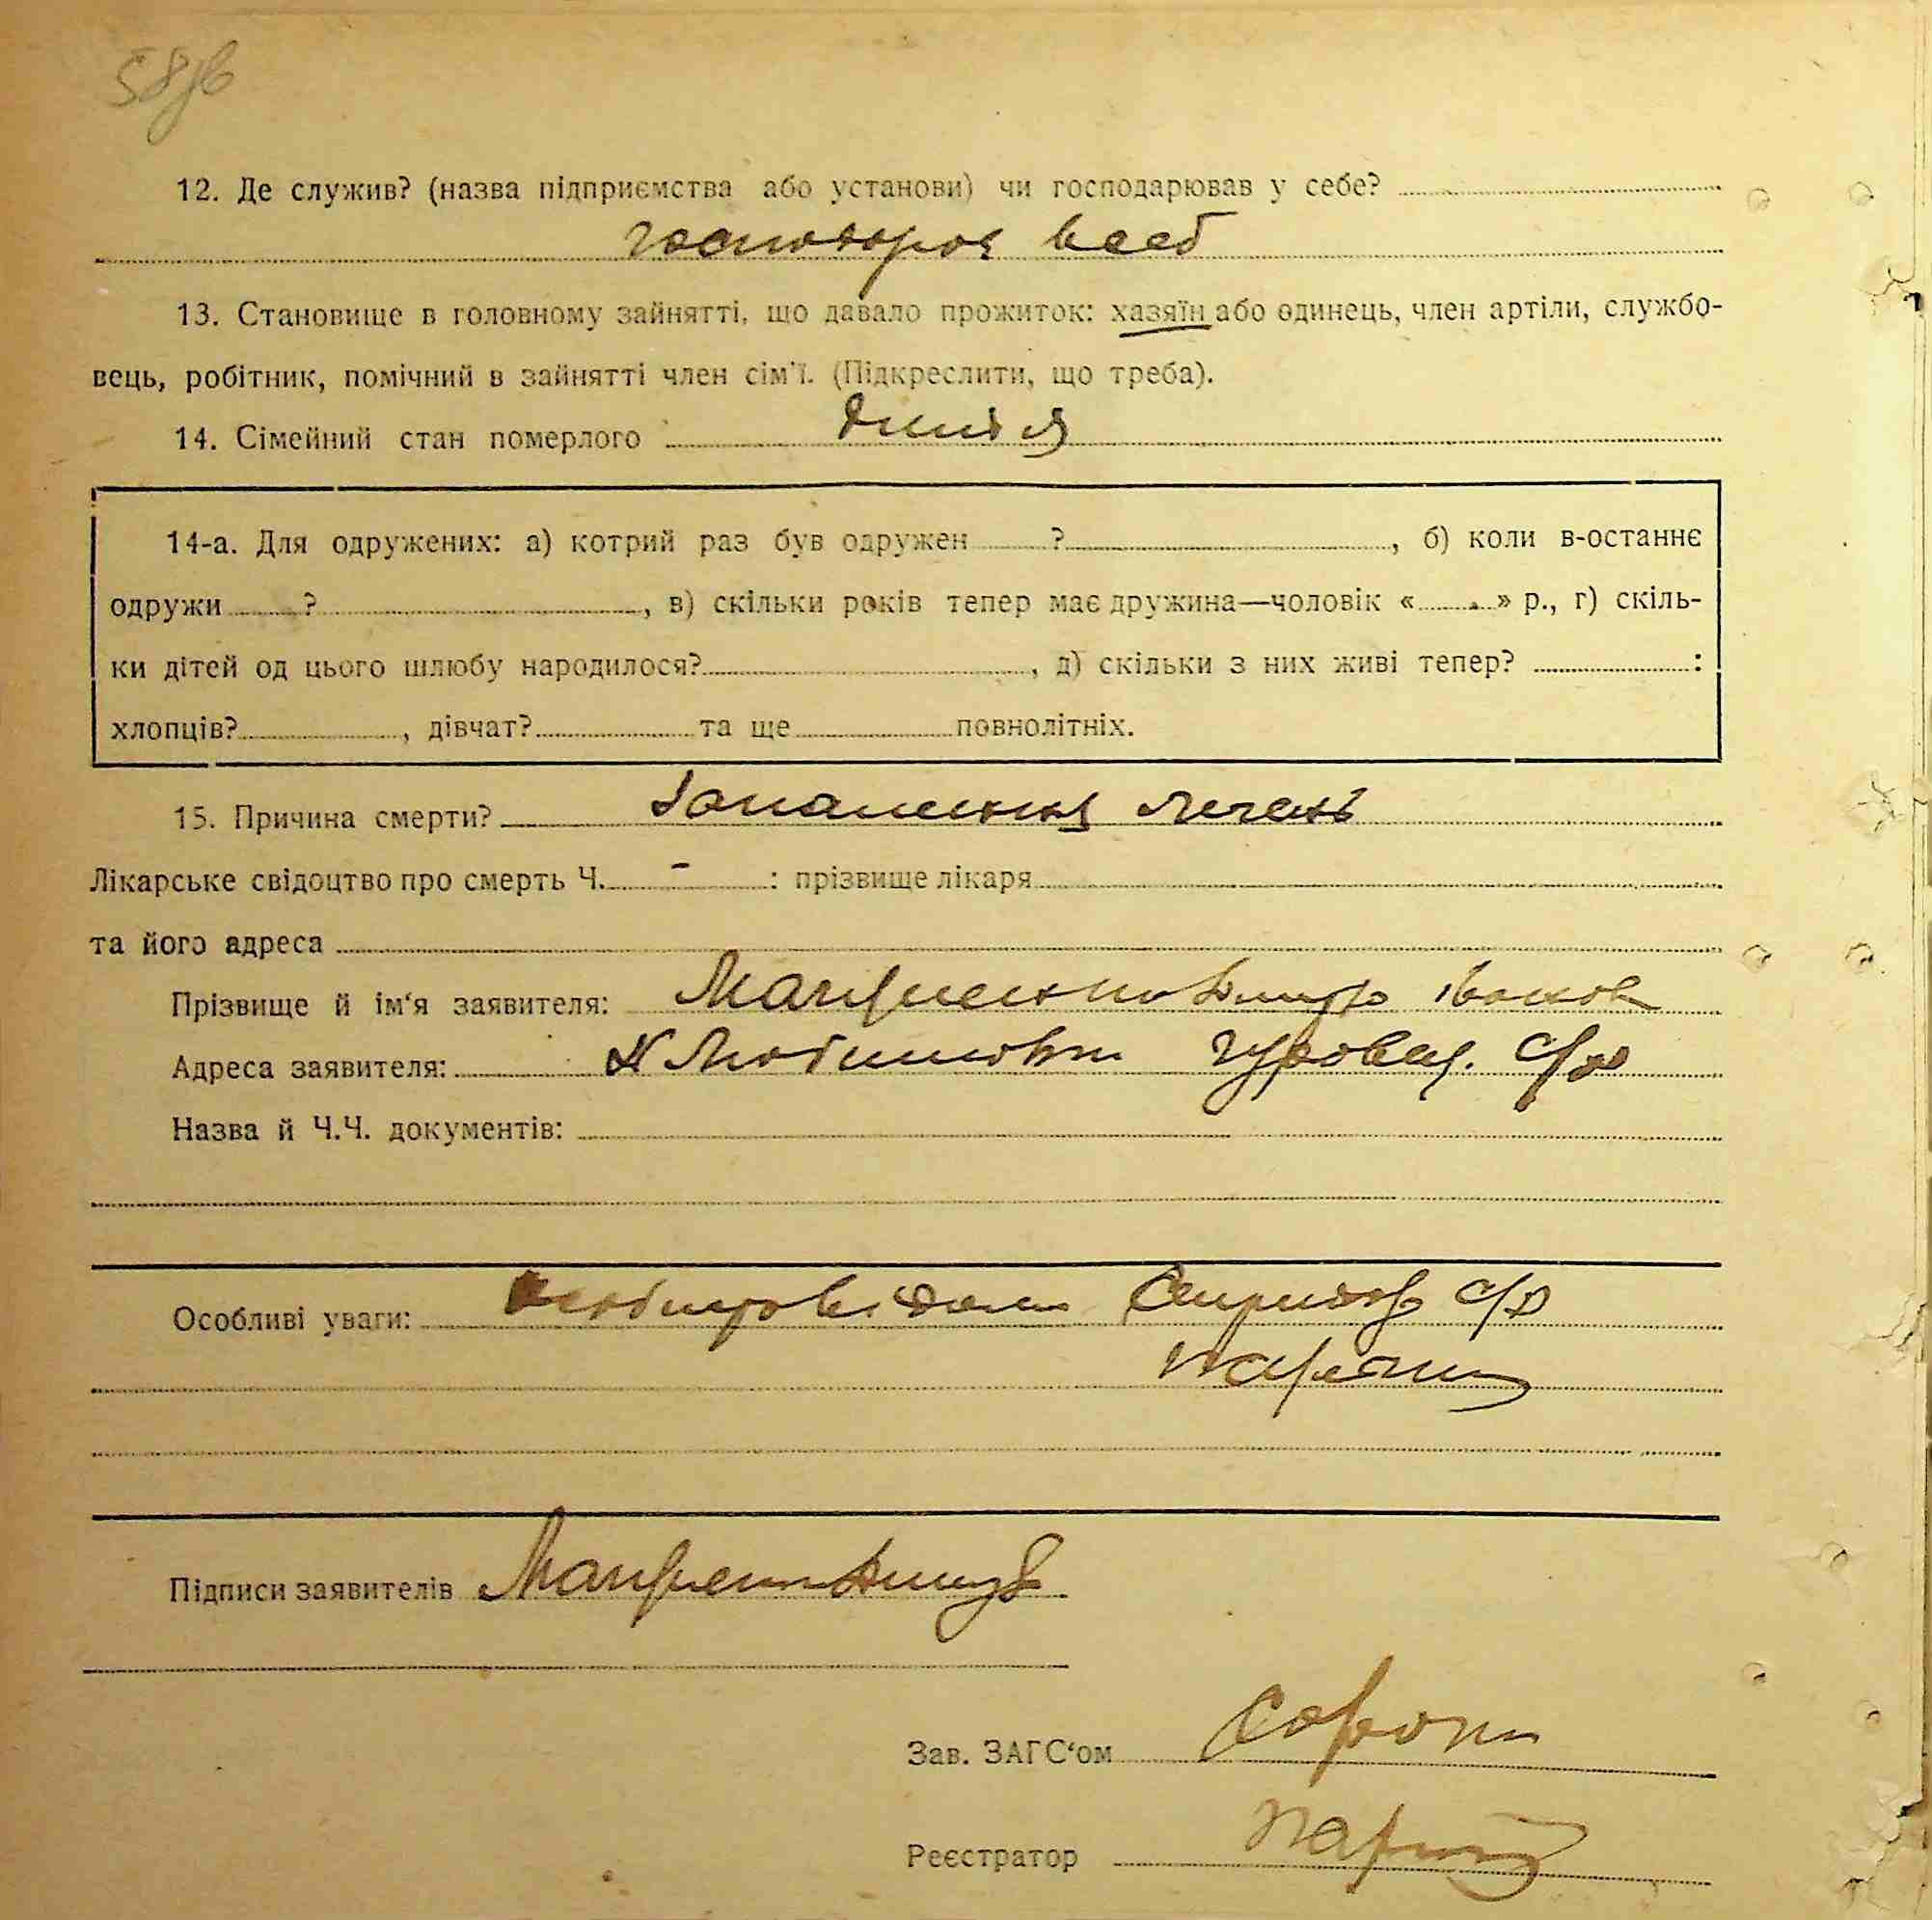 58зв
12. Де служив? (назва підприємства або установи) чи господарював у себе?
господарюв всеб
13. Становище в головному зайнятті, що давало прожиток: хазяїн або одинець, член артіли, службо-
вець, робітник, помічний в зайнятті член сім'ї. (Підкреслити, що треба).
14. Сімейний стан померлого
14-а. Для одружених: а) котрий раз був одружен ?, б) коли в-останнє
одружи ?, в) скільки років тепер має дружина—чоловік « » р., г) скіль-
ки дітей од цього шлюбу народилося?, д) скільки з них живі тепер? :
хлопців?, дівчат? та ще повнолітніх.
15. Причина смерти? Запалення легень
Лікарське свідоцтво про смерть Ч. - : прізвище лікаря
та його адреса
Прізвище й ім'я заявителя:
Адреса заявителя: х Любимовка с/р
Назва й Ч.Ч. документів:
Особливі уваги: с/р
Підписи заявителів
Зав. ЗАГС'ом
Реєстратор